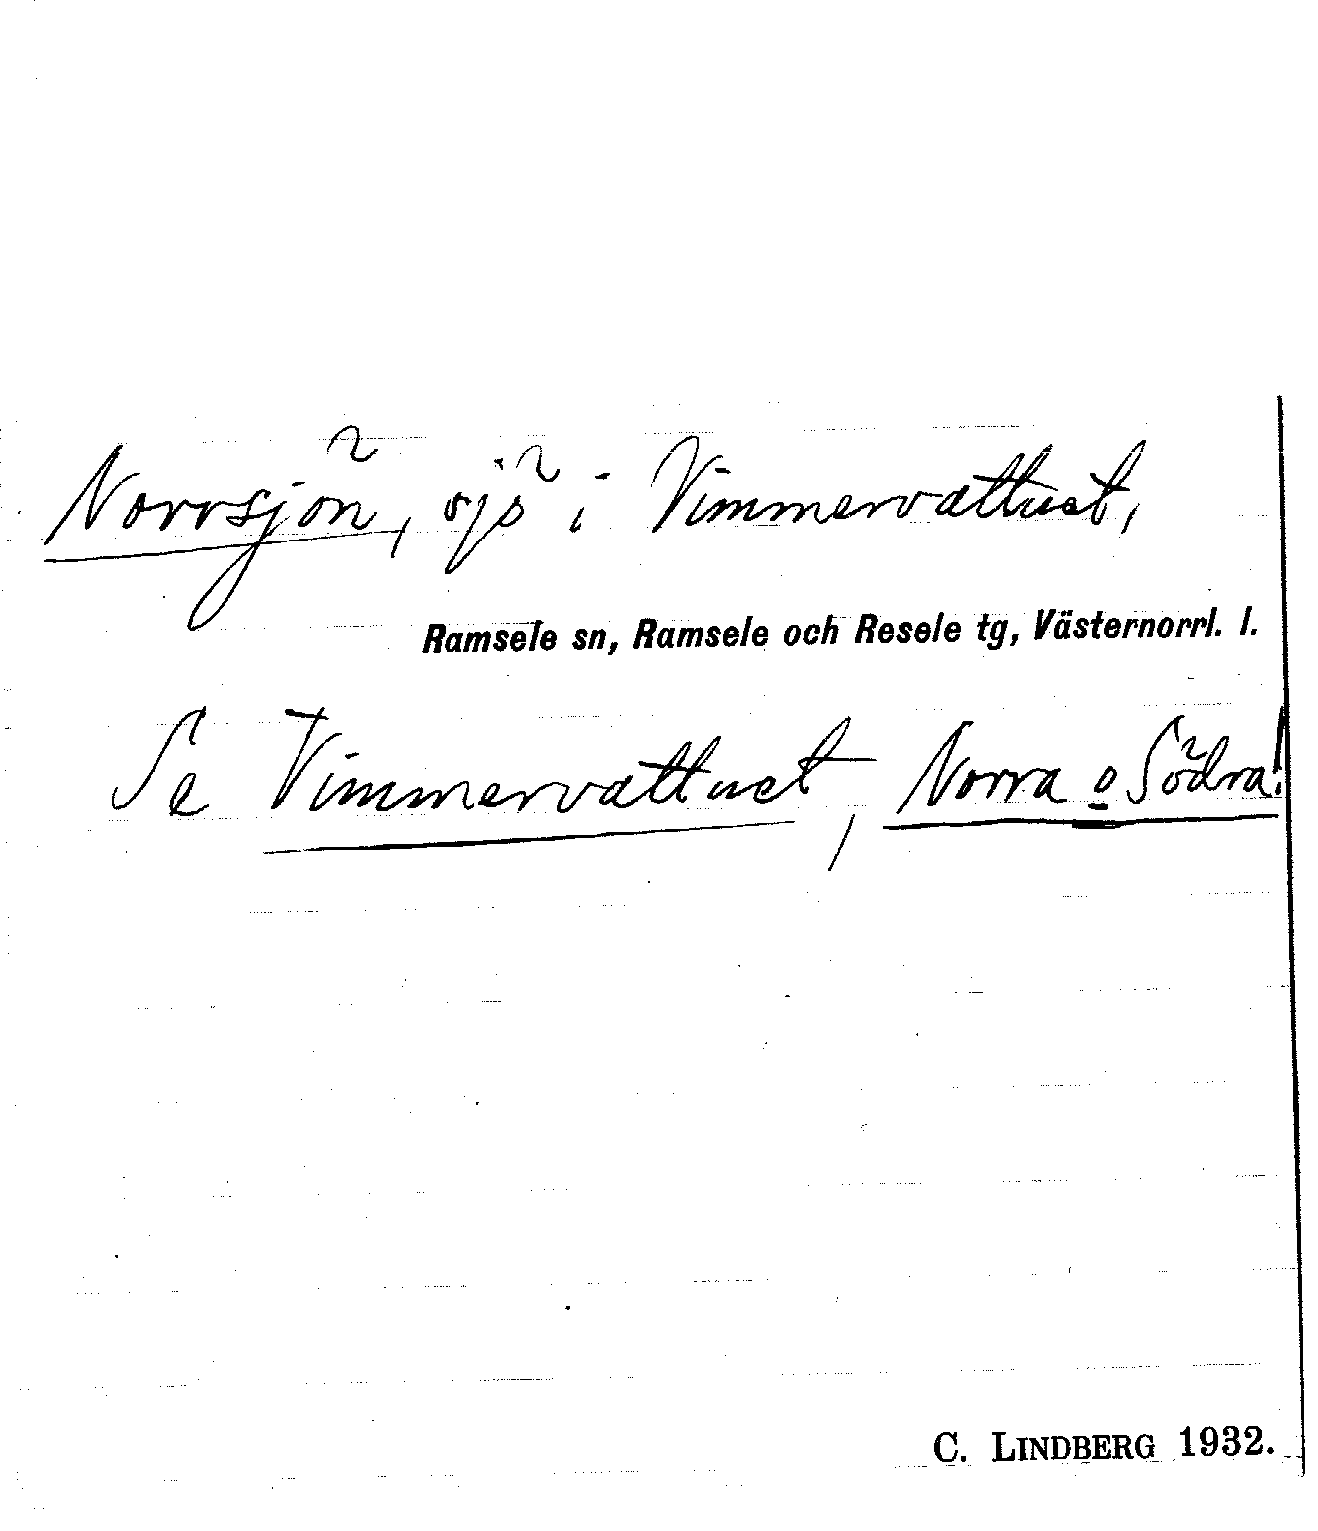 Norrsjön, sjö i Vimmervattnet,
Ramsele sn, Ramsele och Resele tg, Västernorrl. l.
Se Vimmervattnet, Norra o Södra!
C. LINDBERG 1932.